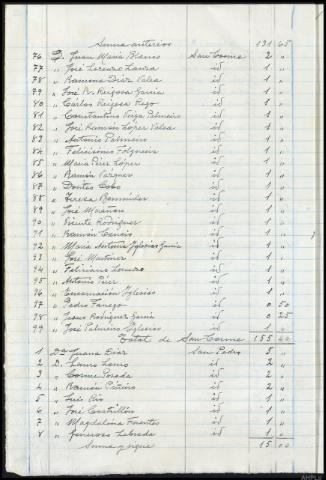 Suma anterior 131 65
76 D. Juan Maria Blanco San Cosme 2 "
77 " José Lorenzo Laura id 1 "
78 " Ramona Diáz Valea id 1 "
79 " José R. Reigosa Garcia id 1 "
80 " Carlos Reigosa Rego id "
81 " Constantino Veiga Palmeiro id 1 "
82 " José Ramón López Valea id 1 "
83 " Antonio Palmeiro id 1 "
84 " Felicisimo Folgueira id 1 "
85 " Maria Pérez López id 1 "
86 " Ramón id 1 "
87 " Cobo id 1 "
88 " Teresa id 1 "
89 " José id 1 "
90 " Vicente Rodriguez id 1 "
91 " Ramón id 1 "
92 " Maria Antonia Iglesias Garcia id 1 "
93 " José Martinez id 1 "
94 " Feliciano id 1 "
95 " Antonio Pérez id 1 "
96 " Encarnación Iglesias id "
97 " Pedro Fanego id 0 50
98 " Jesus Rodriguez Garcia id 0 25
99 " José Palmeiro Iglesias id 1 "
Total de San Cosme 155 40
1 Dª Juana Diáz San Pedro 5 "
2 D. Lauro id 2 "
3 " Cosme Posada id 2 "
4 " Ramón id 2 "
5 " Luis Rio id 1 "
6 " José Castillón id 1 "
7 " Magdalena Fuentes id 1 "
8 " Generosa Labrada id 1 "
Suma y sigue 15 00
AHPLU